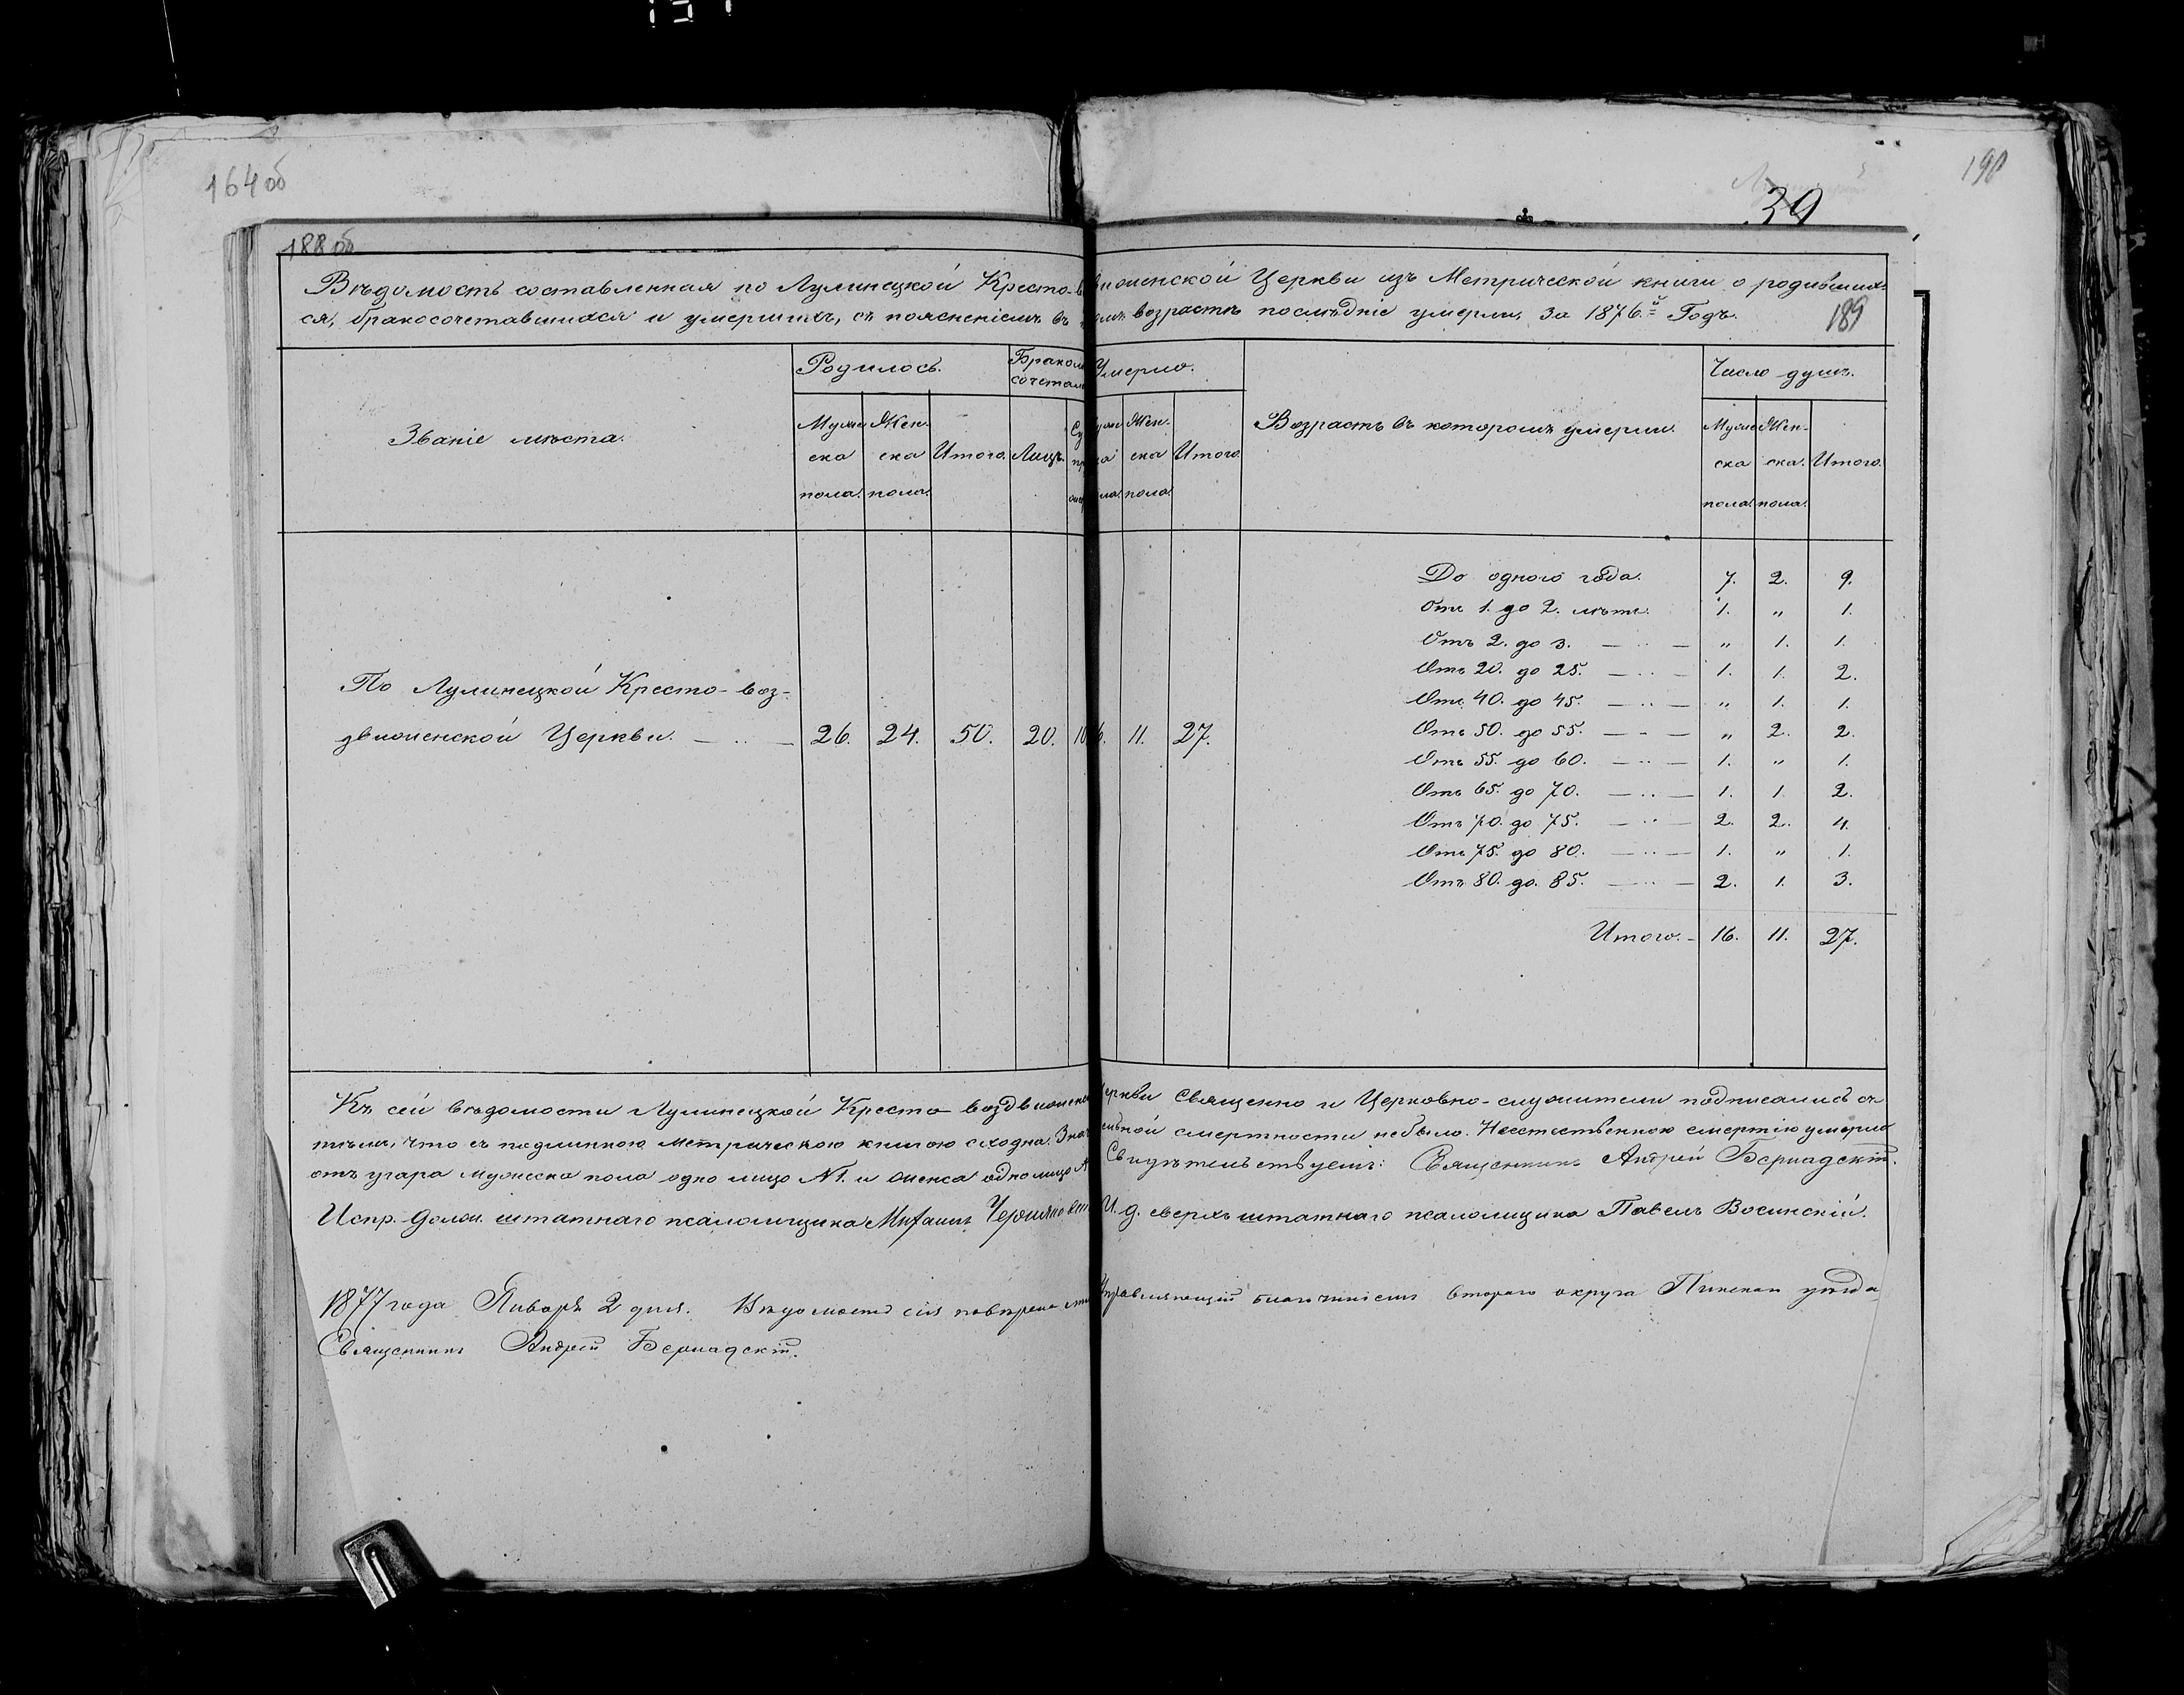 164об
190
39
188об
Вѣдомость составленная по Лулинецкой Кресто-в движенской Церкви изъ Метрической книги о родивших-
ся, бракосочетавшихся и умершихъ, съ поясненіемъ въ комъ возрастѣ послѣдніе умерли, за 1876.й Годъ.
189
Званіе мѣста.
Родилось.
Бракомъ сочетал
Умерло.
Возрастъ въ которомъ умерли.
Число душъ.
Муже ска пола.
Жен- ска пола.
Итого.
Лицъ.
Су пр
Жен- ска пола.
Итого.
Муже ска пола.
Жен- ска. пола.
Итого.
По Лулинецкой Кресто-воз-
движенской Церкви. 26. 24. 50. 20. 10 6. 11. 27.
До одного года. 7. 2. 9.
Отъ 1. до 2. лѣтъ. 1. „ 1.
Отъ 2. до 3. „ 1. 1.
Отъ 20. до 25. 1. 1. 2.
Отъ 40. до 45. „ 1. 1.
Отъ 50. до 55. „ 2. 2.
Отъ 55. до 60. 1. „ 1.
Отъ 65. до 70. 1. 1. 2.
Отъ 70. до 75. 2. 2. 4.
Отъ 75. до 80. 1. „ 1.
Отъ 80. до. 85. 2. 1. 3.
Итого. 16. 11. 27.
Къ сей вѣдомости Лулинецкой Кресто-воздвиженс Церкви Священно и Церковно-служители подписались съ
тѣмъ, что съ подлинною метрическою книгою сходна. Знач ельной смертности небыло. Неестественною смертію умерло
отъ угара мужеска пола одно лицо №1. и женска одно лицо № Свидѣтельствуемъ: Священникъ Андрей Бернадскій.
Испр. Долж. штатнаго псаломщика Михаилъ И. д. сверхъ штатнаго псаломщика Павелъ Восинскій.
1877 года Январь 2 дня. Вѣдомость сія повѣрена Управляющій благочиніемъ втораго округа Пинскаго уѣзда
Священникъ Андрей Бернадскій.